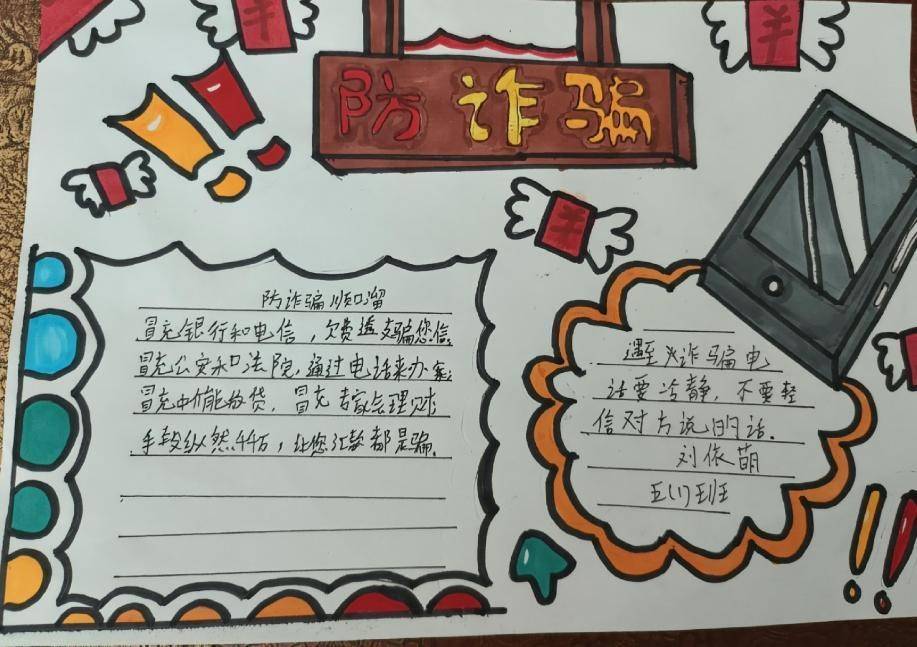 防诈骗
防诈骗顺口溜
冒充银行和电信，欠费透支骗您信。
冒充公安和法院，通过电话来办案；
冒充中介能放贷，冒充专家会理财
手段纵然千万，让您汇款都是骗。
遇到诈骗电
话要冷静，不要轻
信对方说的话。
刘依萌
五（1）班